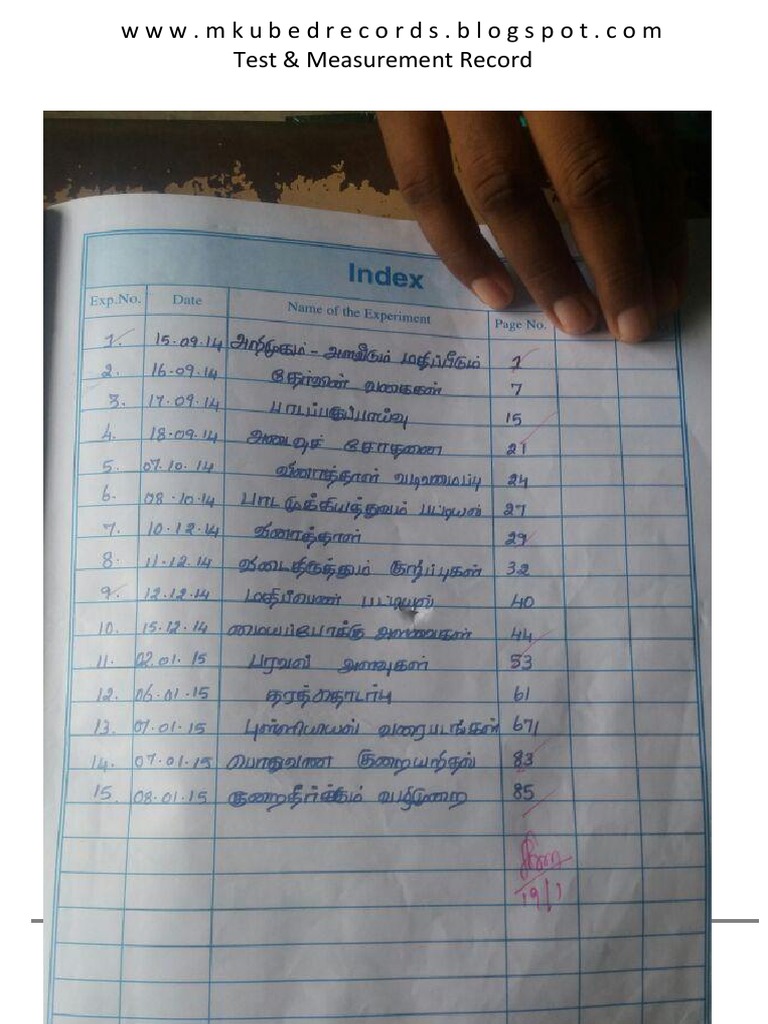 www.mkubedrecords.blogspot.com
Test & Measurement Record
Index
Exp.No. Date Name of the Experiment Page No.
1. 15.09.14 அறிமுகம் - அளவீடும் மதிப்பீடும் 1
2. 16.09.14 தேர்வின் வகைகள் 7
3. 17.09.14 பாடப்பகுப்பாய்வு 15
4. 18.09.14 அடைவுச் சோதனை 21
5. 07.10.14 வினாத்தாள் வடிவமைப்பு 24
6. 08.10.14 பாட முக்கியத்துவம் பட்டியல் 27
7. 10.12.14 வினாத்தாள் 29
8. 11.12.14 விடைத்திருத்தும் குறிப்புகள் 32
9. 12.12.14 மதிப்பெண் பட்டியல் 40
10. 15.12.14 மையப்போக்கு அளவைகள் 44
11. 02.01.15 பரவல் அளவுகள் 53
12. 06.01.15 தரத்தொடர்பு 61
13. 07.01.15 புள்ளியியல் வரைபடங்கள் 67
14. 07.01.15 பொதுவான குறையறிதல் 83
15. 08.01.15 குறைதீர்க்கும் வழிமுறை 85
19/1